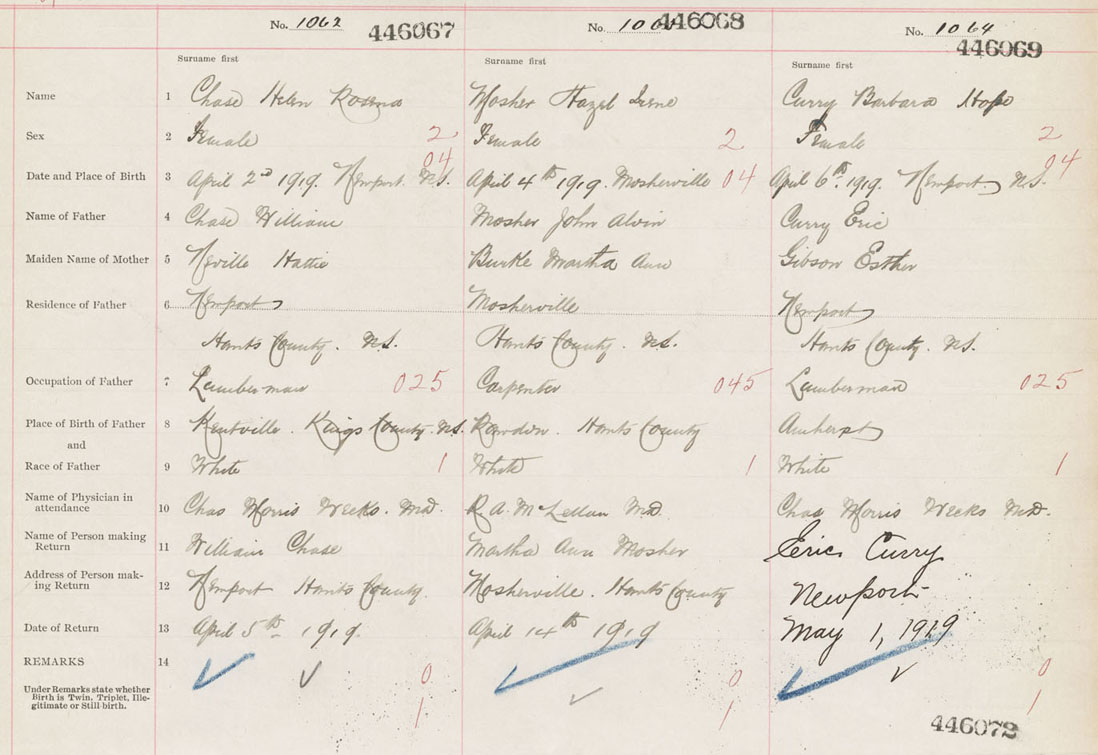 No. 1062 446067 No. 446068 No. 1064 446069
Surname first Surname first Surname first
Name 1 Chase Helen Rosena Mosher Hazel Irene Curry Barbara Hope
Sex 2 Female 2 Female 2 Female 2
04 04
Date and Place of Birth 3 April 2nd 1919. Newport. N.S. April 4th 1919. Mosherville 04 April 6th. 1919. Newport N.S.
Name of Father 4 Chase William Mosher John Alvin Curry Eric
Maiden Name of Mother 5 Neville Hattie Burke Martha Ann Gibson Esther
Residence of Father 6 Newport Mosherville Newport
Hants County. N.S. Hants County. N.S. Hants County. N.S.
Occupation of Father 7 Lumberman 025 Carpenter 045 Lumberman 025
Place of Birth of Father 8 Kentville. Kings County. N.S. Rawdon. Hants County Amherst
and
Race of Father 9 White 1 White 1 White 1
Name of Physician in
attendance 10 Chas Morris Weeks. M.D. R A. McLellan M.D. Chas Morris Weeks M.D.
Name of Person making
Return 11 William Chase Martha Ann Mosher Eric Curry
Address of Person mak-
ing Return 12 Newport Hants County. Mosherville. Hants County Newport
Date of Return 13 April 5th 1919. April 14th 1919 May 1, 1919
REMARKS 14 0 0 0
Under Remarks state whether
Birth is Twin, Triplet, Ille-
gitimate or Still-birth. 1 1 1
446072